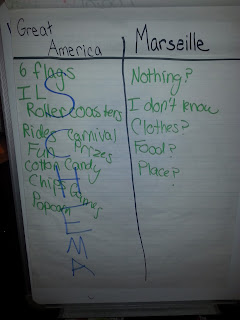 Great
America
6 flags
IL
Rollercoasters
Rides Carnival
Fun Prizes
Cotton Candy
Chips Games
Popcorn
SCHEMA
Marseille
Nothing?
I don't know
Clothes?
Food?
Place?